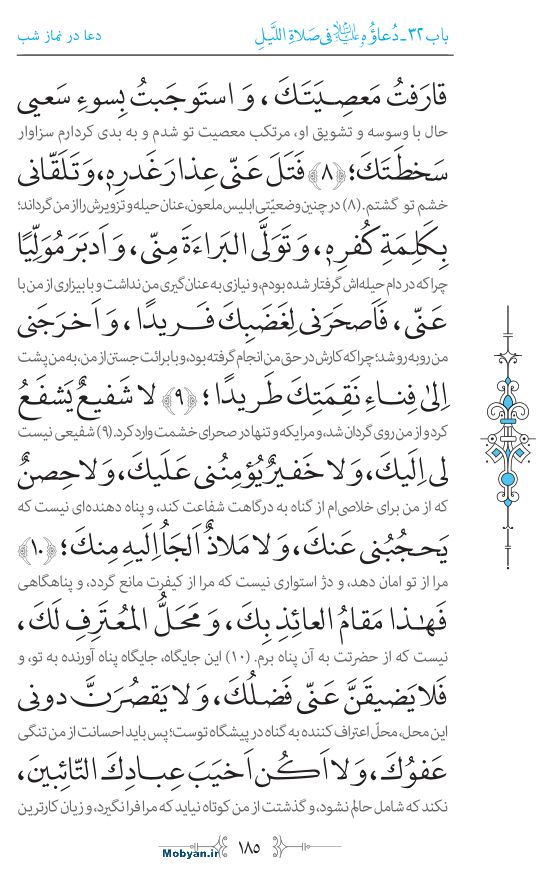 باب ۳۲ـ دُعاؤُهُ عَلَیهِ السَّلام فی صَلاةِ اللَّیلِ
دعا در نماز شب
قارَفتُ مَعصِیَتَكَ، وَ استَوجَبتُ بِسوءِ سَعیی
حال با وسوسه و تشویق او، مرتکب معصیت تو شدم و به بدی کردارم سزاوار
سَخطَتَكَ؛ ﴿۸﴾ فَتَلَ عَنّی عِذارَ غَدرِهٖ، وَ تَلَقّانی
خشم تو گشتم. (۸) در چنین وضعیّتی ابلیس ملعون، عنان حیله و تزویرش را از من گرداند؛
بِکَلِمَةِ کُفرِهٖ، وَ تَوَلَّی البَراءَةَ مِنّی، وَ اَدبَرَ مُوَلِّیًا
چرا که در دام حیله‌اش گرفتار شده بودم، و نیازی به عنان‌گیری من نداشت و با بیزاری از من با
عَنّی، فَاَصحَرَنی لِغَضَبِكَ فَریدًا، وَ اَخرَجَنی
من روبه‌رو شد؛ چرا که کارش در حق من انجام گرفته بود، و با برائت جستن از من، به من پشت
اِلیٰ فِناءِ نَقِمَتِكَ طَریدًا؛ ﴿۹﴾ لا شَفیعٌ یَشفَعُ
کرد و از من روی گردان شد، و مرا یکه و تنها در صحرای خشمت وارد کرد. (۹) شفیعی نیست
لی اِلَیكَ، وَ لا خَفیرٌ یُؤمِنُنی عَلَیكَ، وَ لا حِصنٌ
که از من برای خلاصی‌ام از گناه به درگاهت شفاعت کند، و پناه دهنده‌ای نیست که
یَحجُبُنی عَنكَ، وَ لا مَلاذٌ اَلجَأُ اِلَیهِ مِنكَ؛ ﴿۱۰﴾
مرا از تو امان دهد، و دژ استواری نیست که مرا از کیفرت مانع گردد، و پناهگاهی
فَهٰذا مَقامُ العائِذِ بِكَ، وَ مَحَلُّ المُعتَرِفِ لَكَ،
نیست که از حضرتت به آن پناه برم. (۱۰) این جایگاه، جایگاه پناه آورنده به تو، و
فَلا یَضیقَنَّ عَنّی فَضلُكَ، وَ لا یَقصُرَنَّ دونی
این محل، محلّ اعتراف کننده به گناه در پیشگاه توست؛ پس باید احسانت از من تنگی
عَفوُكَ، وَ لا اَکُن اَخیَبَ عِبادِكَ التّائِبینَ،
نکند که شامل حالم نشود، و گذشتت از من کوتاه نیاید که مرا فرا نگیرد، و زیان کارترین
۱۸۵
Mobyan.ir